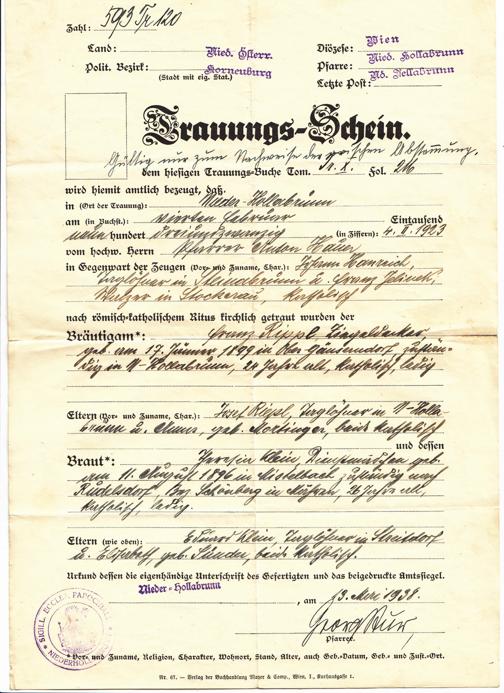 Zahl: 593 Tr 120
Land: Nied. Österr.
Diözese: Wien
Polit. Bezirk: Korneuburg
Pfarre: Nied. Hollabrunn
(Stadt mit eig. Stat.)
Letzte Post: Nd. Hollabrunn
Trauungs-Schein.
Gültig nur zum Nachweise der arischen Abstammung.
dem hiesigen Trauungs-Buche Tom. Fol. 216
wird hiemit amtlich bezeugt, daß
in (Ort der Trauung): Nieder-Hollabrunn
am (in Buchst.): vierten Februar Eintausend
neun hundert Dreiundzwanzig (in Ziffern): 4. II. 1923
vom hochw. Herrn Pfarrer Anton
in Gegenwart der Zeugen (Vor- und Zuname, Char.): Johann
Taglöhner in u. Franz
in Stockerau, Katholisch
nach römisch-katholischem Ritus kirchlich getraut wurden der
Bräutigam*: Franz Rippl, Ziegeldecker,
geb. am 17. Jänner 1899 in Ober Gänserndorf, zustän-
dig in N-Hollabrunn, 24 Jahre alt, Katholisch, ledig
Eltern (Vor- und Zuname, Char.): Josef Rippl, Taglöhner in N-Holla-
brunn u. Anna, geb. beide Katholisch
und dessen
Braut*: Theresia Klein, Dienstmädchen, geb.
am 11. August 1896 in Mistelbach, zuständig nach
Rudelsdorf, Bez. Schönberg in Mähren, 26 Jahre alt,
Katholisch, ledig.
Eltern (wie oben): Eduard Klein, Taglöhner in Streitdorf
u. Elisabeth, geb. beide Katholisch.
Urkund dessen die eigenhändige Unterschrift des Gefertigten und das beigedruckte Amtssiegel.
Nieder-Hollabrunn, am 13. Mai 1938.
SIGILL. ECCLES. PAROCHIAL.
Georg
Pfarrer.
*Vor- und Zuname, Religion, Charakter, Wohnort, Stand, Alter, auch Geb.-Datum, Geb.- und Zust.-Ort.
Nr. 67. – Verlag der Buchhandlung Mayer & Comp., Wien, I.,